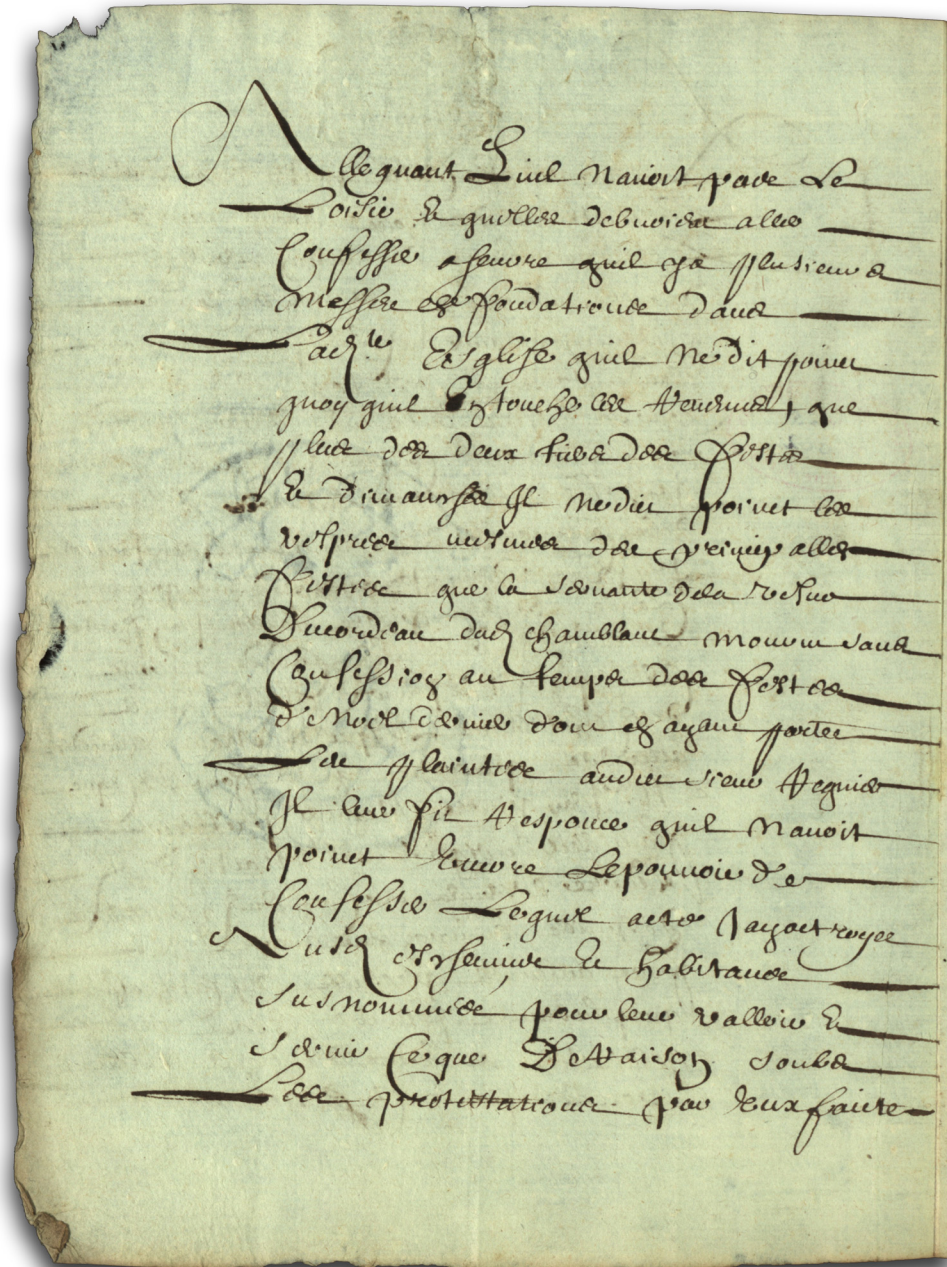 Alleguant Quil navoit pade Le
Loisir & quilles debvoient aller
Confesser aheure quil ya plusieurs
Messes de fondationes dans
Ladte Esglise quil ne dit point
quoy quil En touche les Revenus, que
plus des deux tiers des festes
& dimanches Il ne dit point les
vespres mesmes des principalles
festes que la servante dela vefve
Ducordeau dud chamblanc mourut sans
Confession au temps des festes
de Noel dernier dont en ayant portée
Les plaintes audit sieur Regnier
Il leur fit Responce quil Navoit
point Encore Le pouvoir de
Confesser Lequel acte Jay octroyee
Ausd eschevins & habitands
susnommées, pour leur valloir &
servir Ce que De Raison soubs
Les protestations par Eux faites